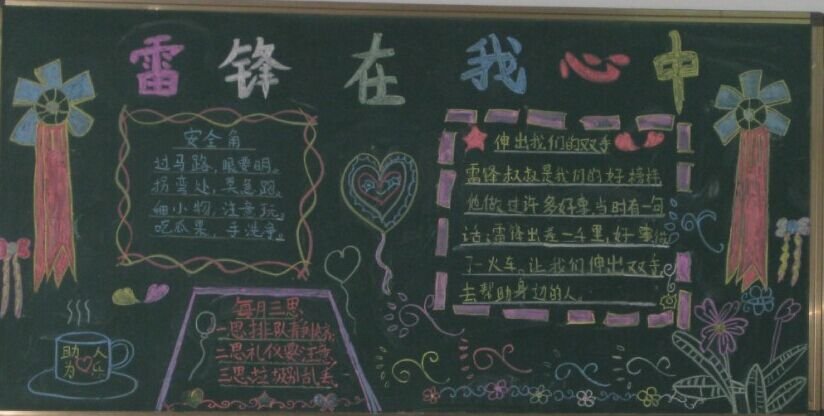 雷锋在我心中
安全角
过马路，眼要明。
拐弯处，莫急跑。
细小物，注意玩。
吃瓜果，手洗净。
伸出我们的双手
雷锋叔叔是我们的好榜样
他做过许多好事当时有一句
话：雷锋出差一千里，好事做
了一火车。让我们伸出双手
去帮助身边的人。
每月三思
一思排队静
二思礼仪要注意
三思垃圾别乱丢
助人
为